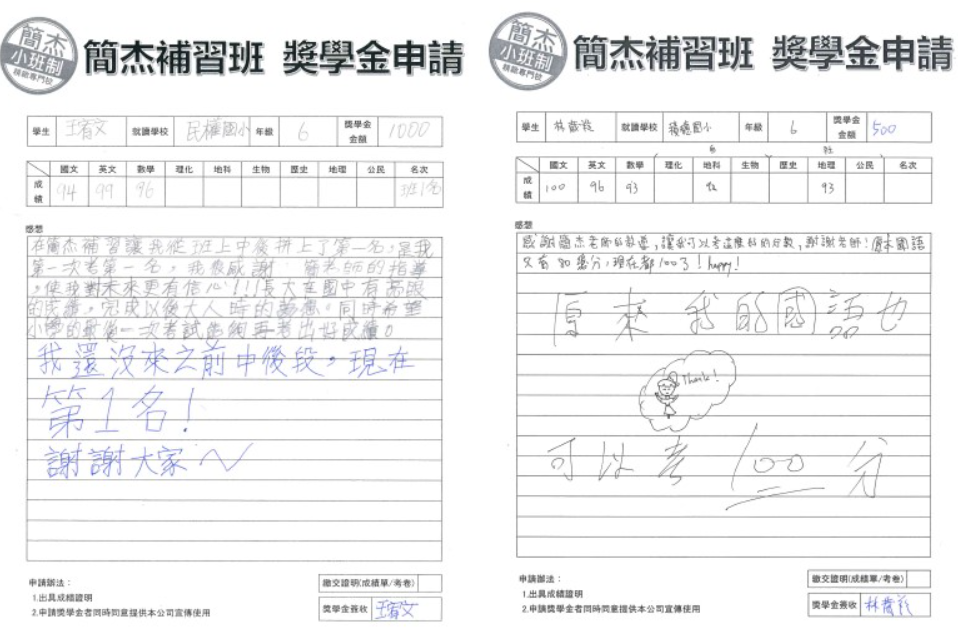 簡杰
小班制
簡杰補習班 獎學金申請
學生 王宥文 就讀學校 民權國小 年級 6 獎學金金額 1000
國文 英文 數學 理化 地科 生物 歷史 地理 公民 名次
成績 94 99 96 班1名
感想
在簡杰補習讓我從班上中後拼上了第一名,是我
第一次考第一名,我很感謝 簡老師的指導
,使我對未來更有信心!!!長大在國中有高眼
的成績,完成以後大人時的夢想。同時希望
小學的最後一次考試能夠再考出好成績。
我還沒來之前中後段,現在
第1名!
謝謝大家~
申請辦法:
1.出具成績證明
2.申請獎學金者同時同意提供本公司宣傳使用
繳交證明(成績單/考卷)
獎學金簽收 王宥文
簡杰
小班制
簡杰補習班 獎學金申請
學生 林 就讀學校 國小 年級 6 獎學金金額 500
國文 英文 數學 理化 地科 生物 歷史 地理 公民 名次
成績 100 96 93 92 93
感想
感謝簡杰老師的教導,讓我可以考這麼好的分數,謝謝老師!原本國語
又有80幾分,現在都100了!happy!
原來我的國語也
Thank!
可以考100分
申請辦法:
1.出具成績證明
2.申請獎學金者同時同意提供本公司宣傳使用
繳交證明(成績單/考卷)
獎學金簽收 林